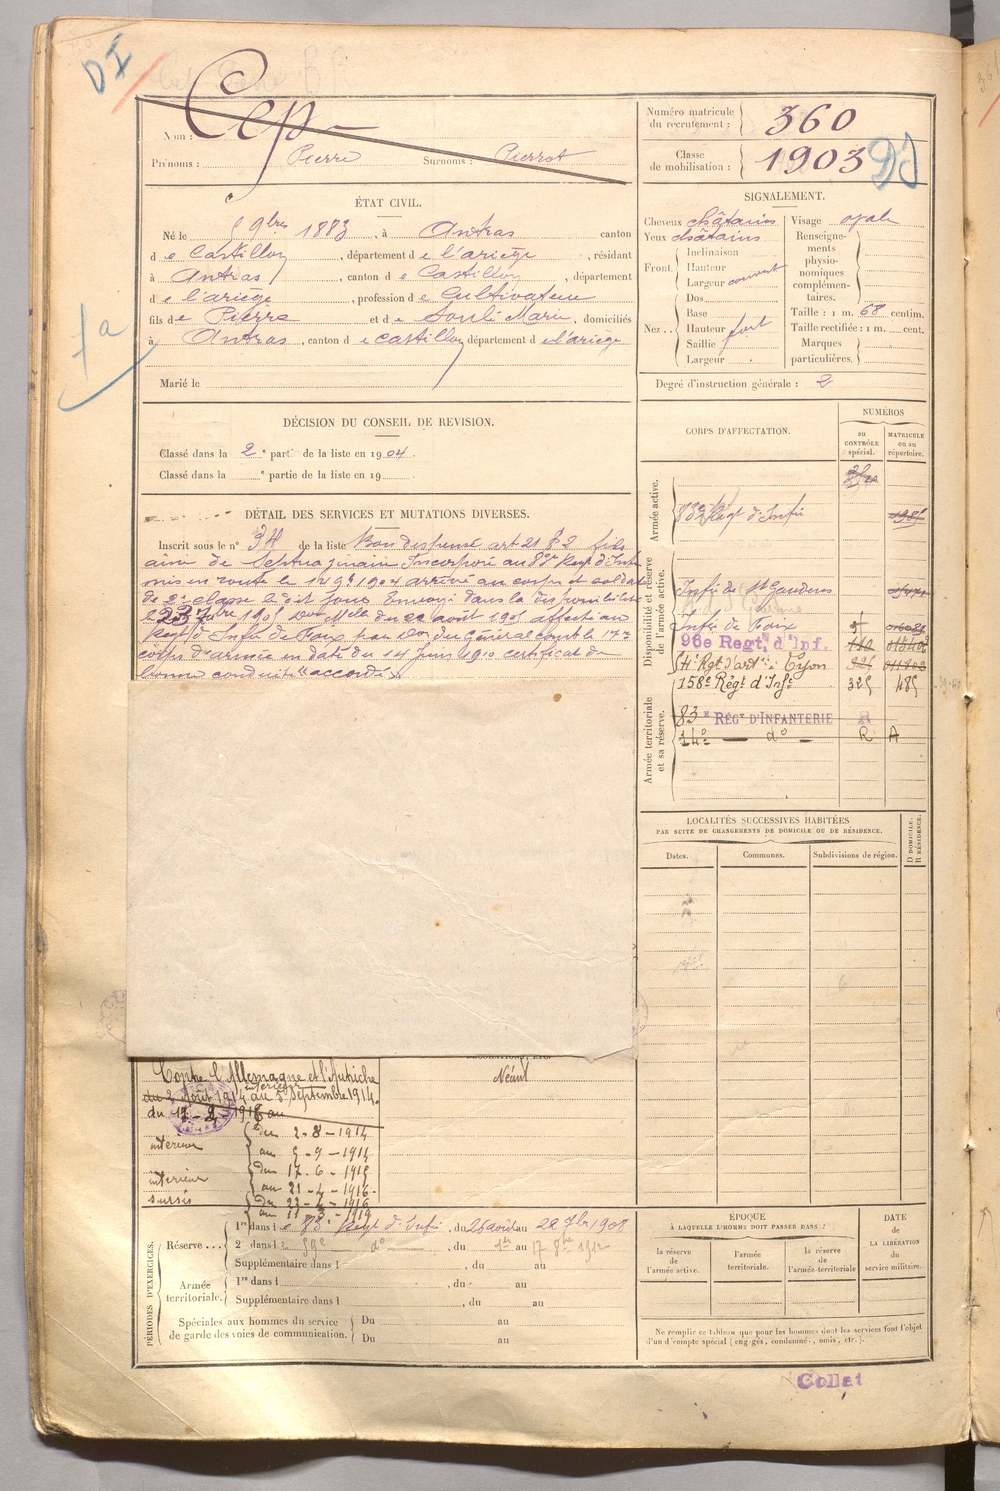 DI
Cep
Nom :
Prénoms : Pierre Surnoms : Pierrot
Numéro matricule du recrutement : 360
Classe de mobilisation : 1903
ÉTAT CIVIL.
Né le 5 9bre 1883, à Antras canton
de Castillon, département de l'ariège, résidant
à Antras, canton de Castillon, département
de l'ariège, profession de Cultivateur
fils de Pierre et de Soulé Marie, domiciliés
à Antras, canton de castillon département de l'ariège
Marié le
1a
SIGNALEMENT.
Cheveux châtains
Yeux châtains
Front. Inclinaison
Hauteur
Largeur couvert
Nez .. Dos
Base
Hauteur fort
Saillie
Largeur
Visage ovale
Renseignements physionomiques complémentaires.
Taille : 1 m. 68 centim.
Taille rectifiée : 1 m. cent.
Marques particulières.
Degré d'instruction générale : 2
DÉCISION DU CONSEIL DE REVISION.
Classé dans la 2e partie de la liste en 1904.
Classé dans la e partie de la liste en 19 .
DÉTAIL DES SERVICES ET MUTATIONS DIVERSES.
Inscrit sous le n° 34 de la liste Bon dispensé art 21 § 2 fils
aîné de septuagénaire Incorporé au 83e Regt d'Infie
mis en route le 14 9bre 1904 arrivé au corps et soldat
de 2e classe le dit jour Envoyé dans la disponibilité
le 23 7bre 1905 Don Mlle du 22 août 1905 affecté au
Regt d'Infie de Foix par Don du Général Comdt le 17e
corps d'armée en date du 14 Juin 1910 certificat de
bonne conduite "accordé".
CORPS D'AFFECTATION.
NUMÉROS
au CONTRÔLE spécial.
MATRICULE ou au répertoire.
Armée active.
83e Regt d'Infie
Disponibilité et réserve de l'armée active.
Infie de St Gaudens
Infie de Foix
96e Regt. d'Inf.
14e Rgt d'artie à Lyon
158e Régt d'Infie 325 485
Armée territoriale et sa réserve.
83e RÉGT D'INFANTERIE R
14e — do — R A
LOCALITÉS SUCCESSIVES HABITÉES
PAR SUITE DE CHANGEMENTS DE DOMICILE OU DE RÉSIDENCE.
Dates.
Communes.
Subdivisions de région.
D DOMICILE. R RÉSIDENCE.
Contre l'Allemagne et l'Autriche
intérieur
du 2 Août 1914 au 5 Septembre 1914.
Néant
intérieur du 2-8-1914
au 5-9-1914
intérieur du 17-6-1915
au 21-4-1916
sursis du 22-4-1916
au 11-3-1919
PÉRIODES D'EXERCICES.
Réserve ... 1re dans le 83e Regt d'Infie, du 26 août au 22 7bre 1908
2e dans le 59e do, du 1er au 17 8bre 1912
Supplémentaire dans l , du au
Armée territoriale. 1re dans l , du au
Supplémentaire dans l , du au
Spéciales aux hommes du service de garde des voies de communication. Du au
Du au
ÉPOQUE
À LAQUELLE L'HOMME DOIT PASSER DANS :
la réserve de l'armée active.
l'armée territoriale.
la réserve de l'armée territoriale
DATE de LA LIBÉRATION du service militaire.
Ne remplir ce tableau que pour les hommes dont les services font l'objet
d'un décompte spécial (engagés, condamnés, omis, etc.).
Collat